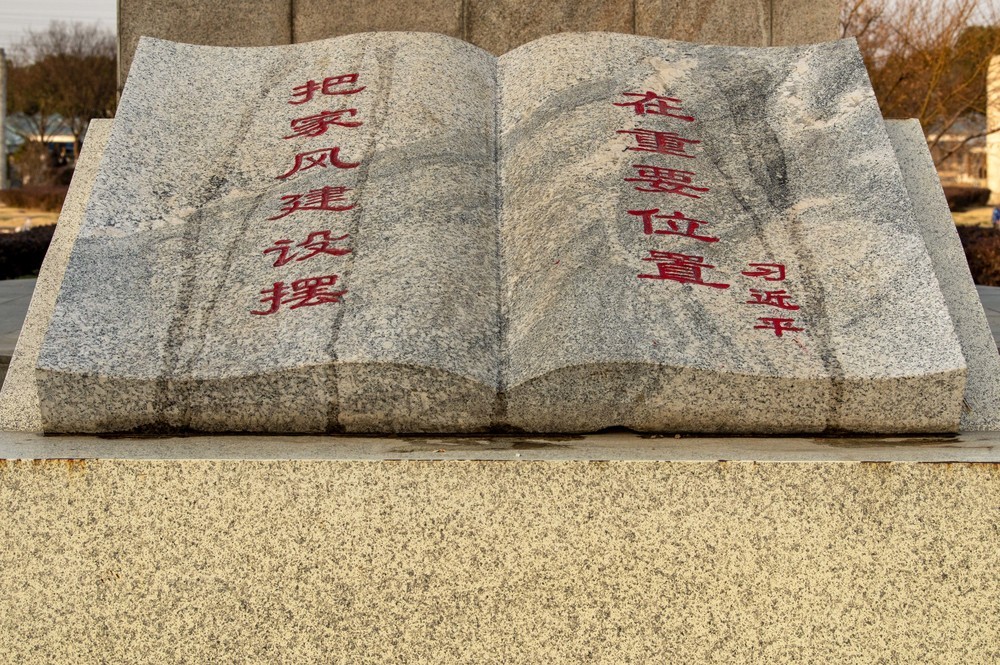 把家风建设摆
在重要位置
习近平